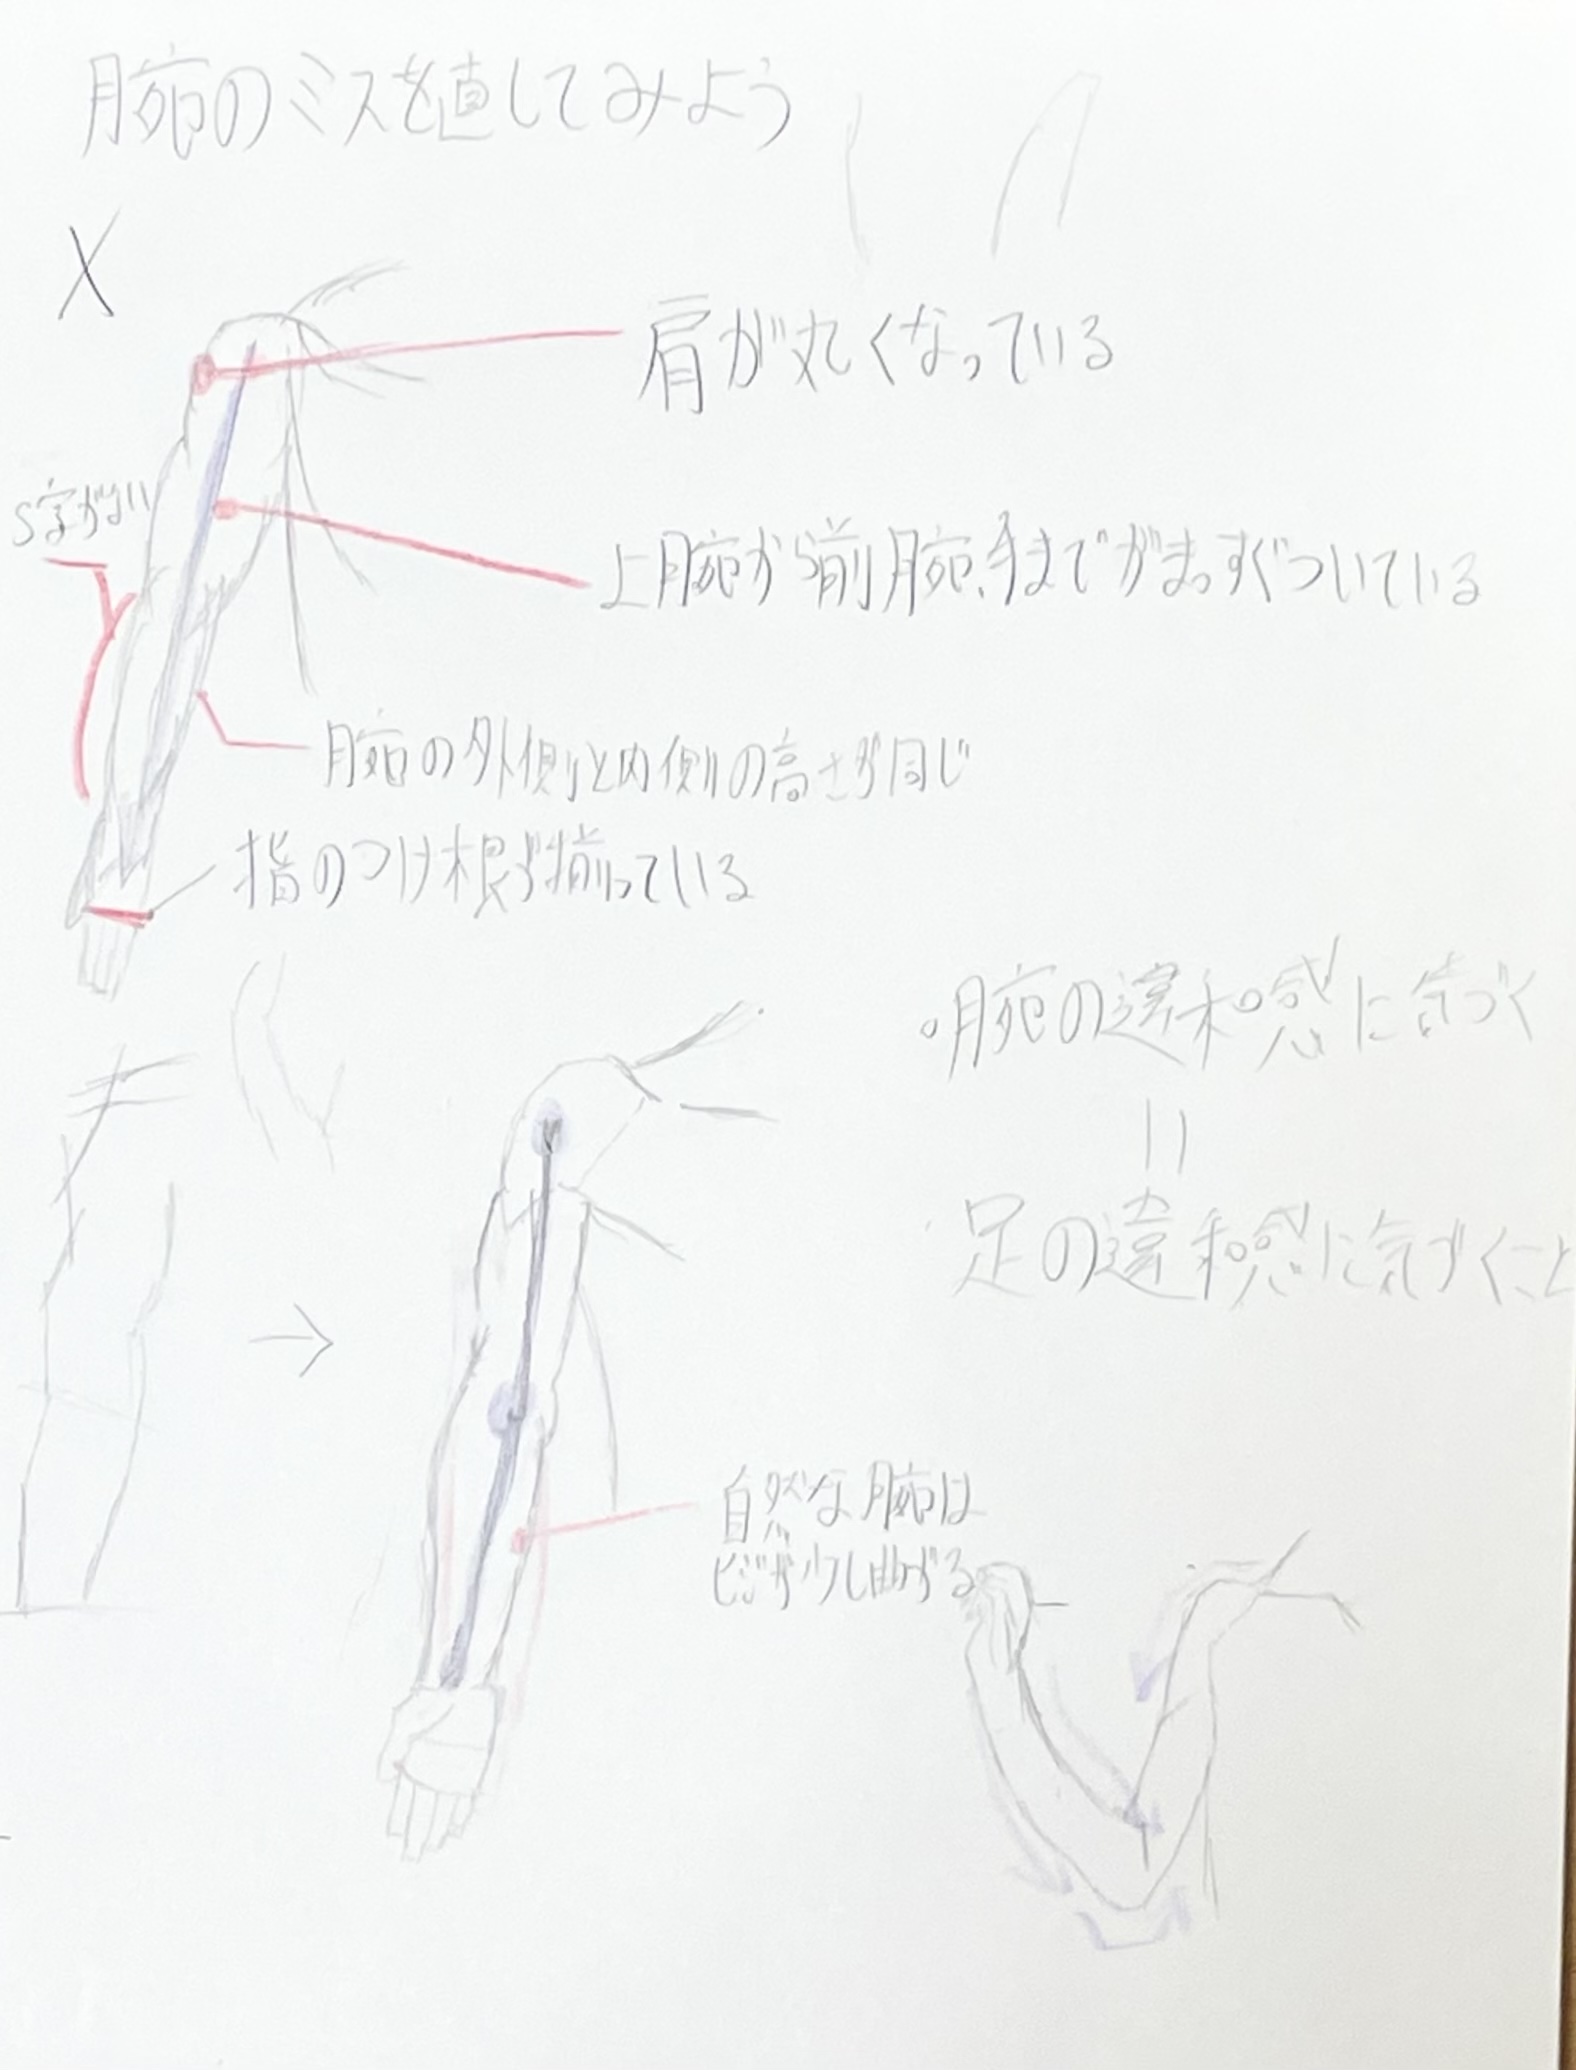 腕のミスを直してみよう
X
肩が丸くなっている
S字がない
上腕から前腕、手までがまっすぐついている
腕の外側と内側の高さが同じ
指のつけ根が揃っている
・腕の違和感に気づく
||
足の違和感に気づくこと
→
自然な腕は
ヒジが少し曲がる